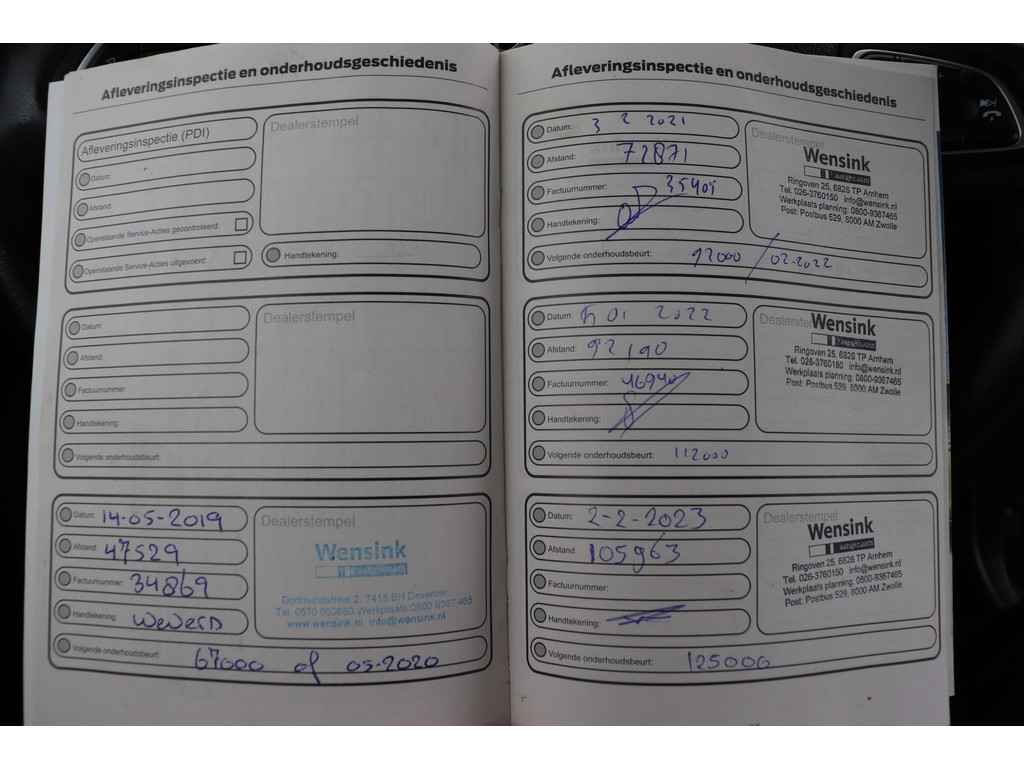 Afleveringsinspectie en onderhoudsgeschiedenis
Afleveringsinspectie (PDI)
Datum:
Afstand:
Openstaande Service-Acties gecontroleerd:
Openstaande Service-Acties uitgevoerd:
Dealerstempel
Handtekening:
Datum:
Afstand:
Factuurnummer:
Handtekening:
Volgende onderhoudsbeurt:
Dealerstempel
Datum: 14-05-2019
Afstand: 47529
Factuurnummer: 34869
Handtekening:
Volgende onderhoudsbeurt: 67000 of 05-2020
Dealerstempel
Wensink
2, 7418 BH Deventer
Tel. 0570 Werkplaats 0800 9367465
www.wensink.nl info@wensink.nl
Afleveringsinspectie en onderhoudsgeschiedenis
Datum: 3 2 2021
Afstand: 72871
Factuurnummer: 35401
Handtekening:
Volgende onderhoudsbeurt: 92000 / 02-2022
Dealerstempel
Wensink
Ringoven 25, 6826 TP Arnhem
Tel. 026-3760150 info@wensink.nl
Werkplaats planning: 0800-9367465
Post: Postbus 529, 8000 AM Zwolle
Datum: 01 2022
Afstand: 92190
Factuurnummer: 46940
Handtekening:
Volgende onderhoudsbeurt: 112000
Wensink
Ringoven 25, 6826 TP Arnhem
Tel. 026-3760150 info@wensink.nl
Werkplaats planning: 0800-9367465
Post: Postbus 529, 8000 AM Zwolle
Datum: 2-2-2023
Afstand 105963
Factuurnummer:
Handtekening:
Volgende onderhoudsbeurt: 125000
Dealerstempel
Wensink
Ringoven 25, 6826 TP Arnhem
Tel. 026-3760150 info@wensink.nl
Werkplaats planning: 0800-9367465
Post: Postbus 529, 8000 AM Zwolle